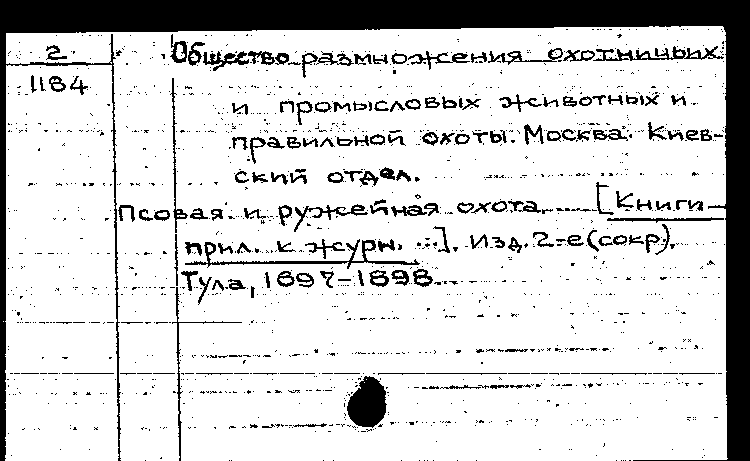 2
1184
Общество размножения охотничьих
и промысловых животных и
правильной охоты. Москва. Киев-
ский отдел.
Псовая и ружейная охота. [Книги
прил. к журн. ...]. Изд. 2-е (сокр).
Тула, 1897-1898.